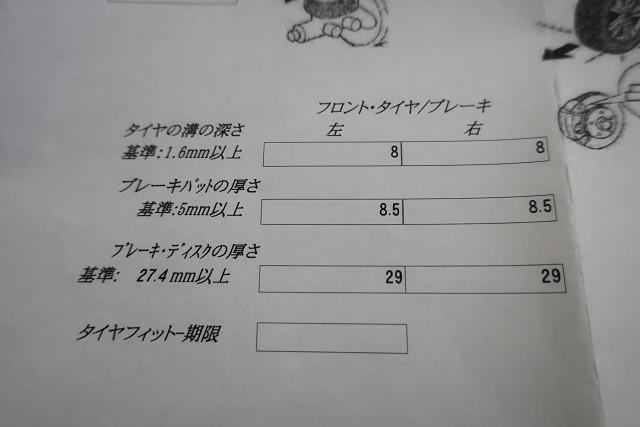 フロント・タイヤ/ブレーキ
タイヤの溝の深さ 左 右
基準:1.6mm以上 8 8
ブレーキパットの厚さ
基準:5mm以上 8.5 8.5
ブレーキ・ディスクの厚さ
基準: 27.4mm以上 29 29
タイヤフィットー期限